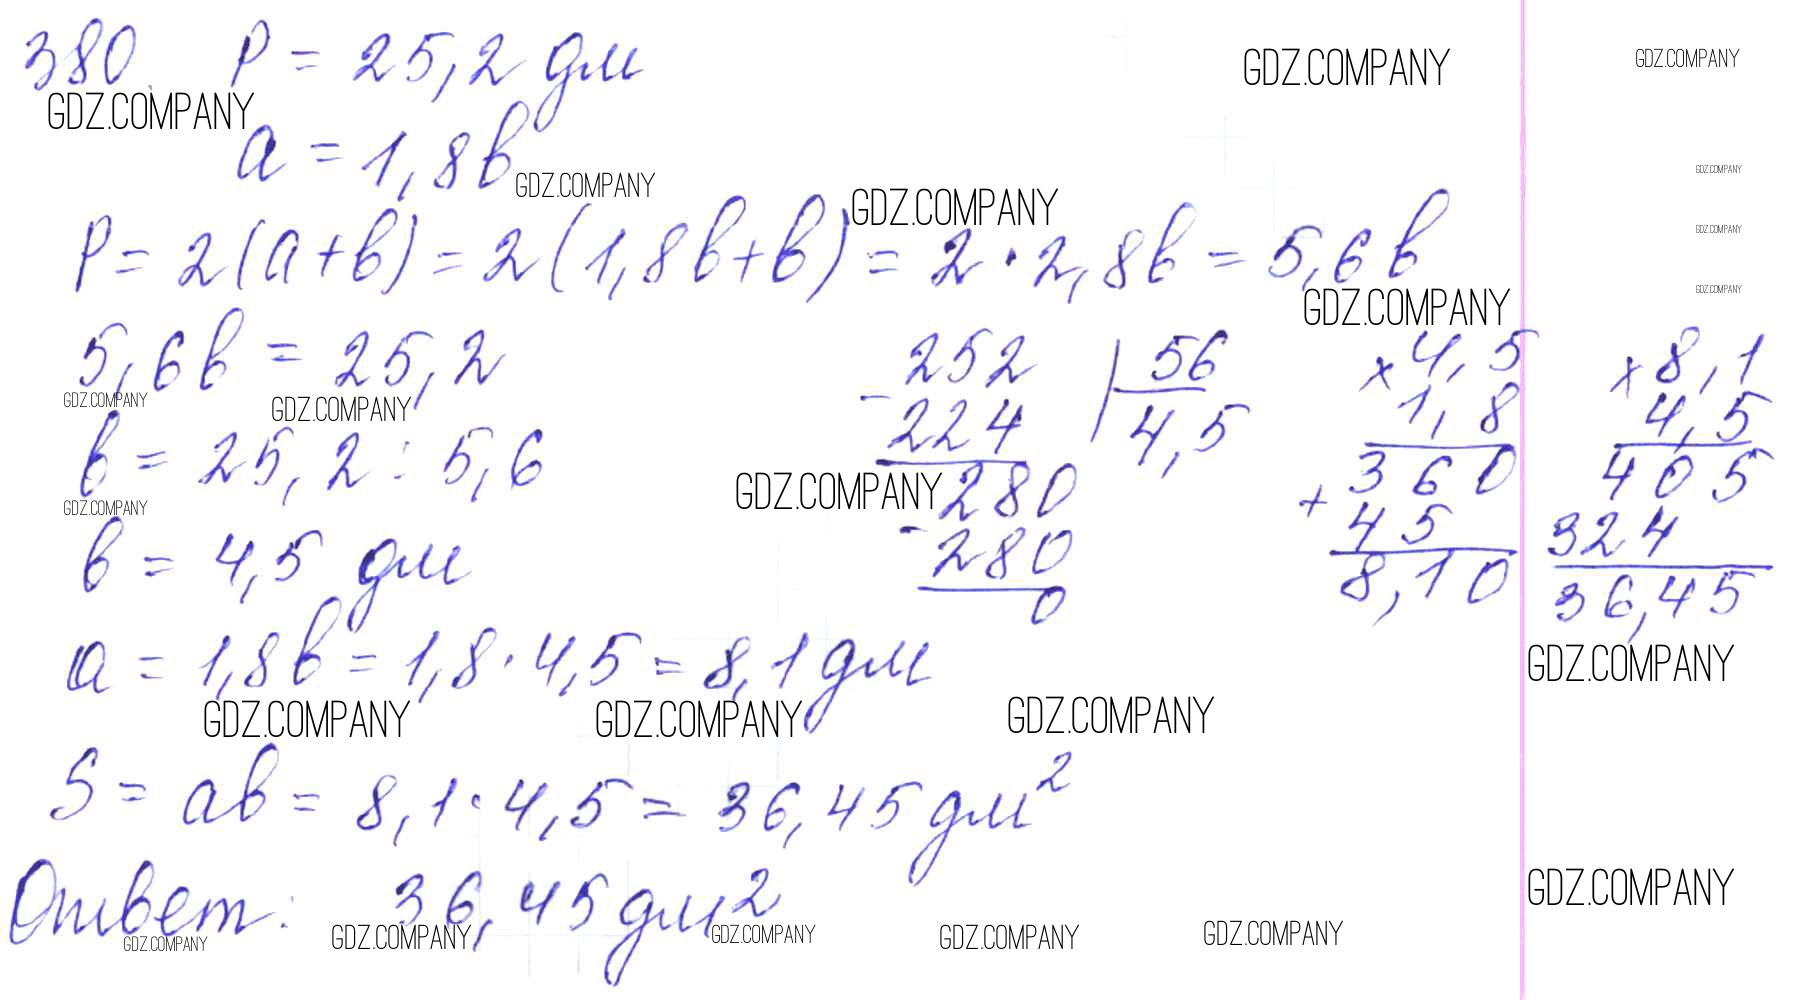 380. P = 25,2 дм
GDZ.COMPANY GDZ.COMPANY GDZ.COMPANY
a = 1,8b
GDZ.COMPANY GDZ.COMPANY GDZ.COMPANY
P = 2(a+b) = 2(1,8b+b) = 2·2,8b = 5,6b
GDZ.COMPANY
GDZ.COMPANY GDZ.COMPANY
5,6b = 25,2
GDZ.COMPANY GDZ.COMPANY
b = 25,2 : 5,6
GDZ.COMPANY GDZ.COMPANY
b = 4,5 дм
a = 1,8b = 1,8·4,5 = 8,1 дм
GDZ.COMPANY GDZ.COMPANY GDZ.COMPANY
S = ab = 8,1·4,5 = 36,45 дм²
Ответ: 36,45 дм²
GDZ.COMPANY GDZ.COMPANY GDZ.COMPANY GDZ.COMPANY GDZ.COMPANY
252 | 56
- 224 4,5
280
- 280
0
× 4,5
1,8
360
+ 45
8,10
× 8,1
4,5
405
324
36,45
GDZ.COMPANY
GDZ.COMPANY